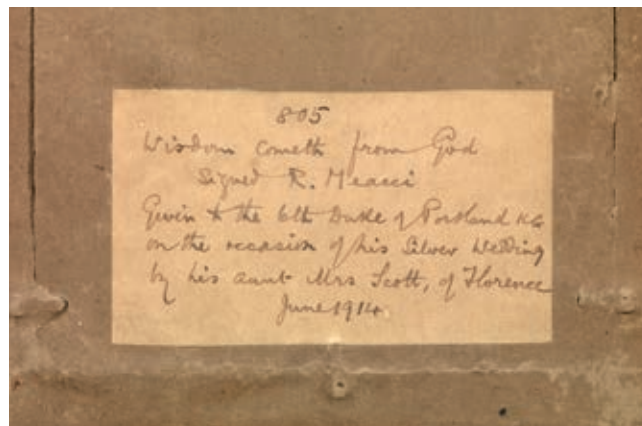 805
Wisdom cometh from God
Signed R. Meacci
Given to the 6th Duke of Portland KG
on the occasion of his Silver Wedding
by his aunt Mrs Scott, of Florence
June 1914.